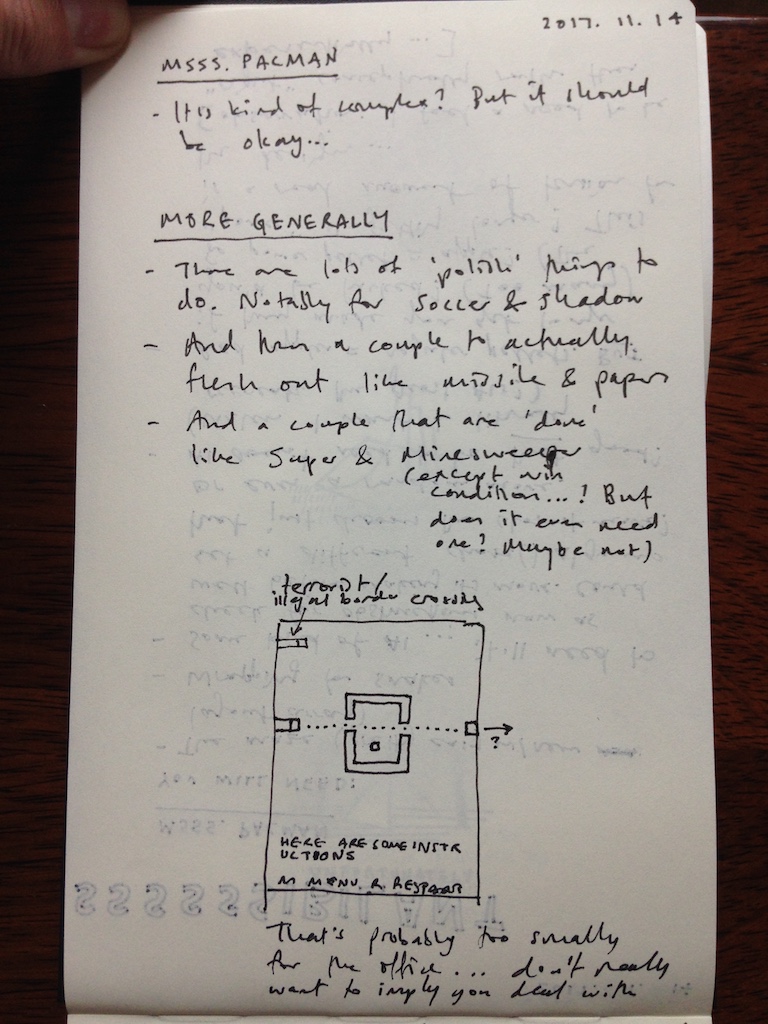 2017. 11. 14
MSSS. PACMAN
- It is kind of complex? But it should
be okay...
MORE GENERALLY
- There are lots of 'polish' things to
do. Notably for soccer & shadow
- And then a couple to actually
flesh out like missile & paper
- And a couple that are 'done'
like Super & Minesweeper
(except win
condition...! But
does it even need
one? Maybe not)
terrorist/
illegal border crossing
?
HERE ARE SOME INSTR
UCTIONS
M MENU. R.
That's probably too
for the office... don't really
want to imply you deal with